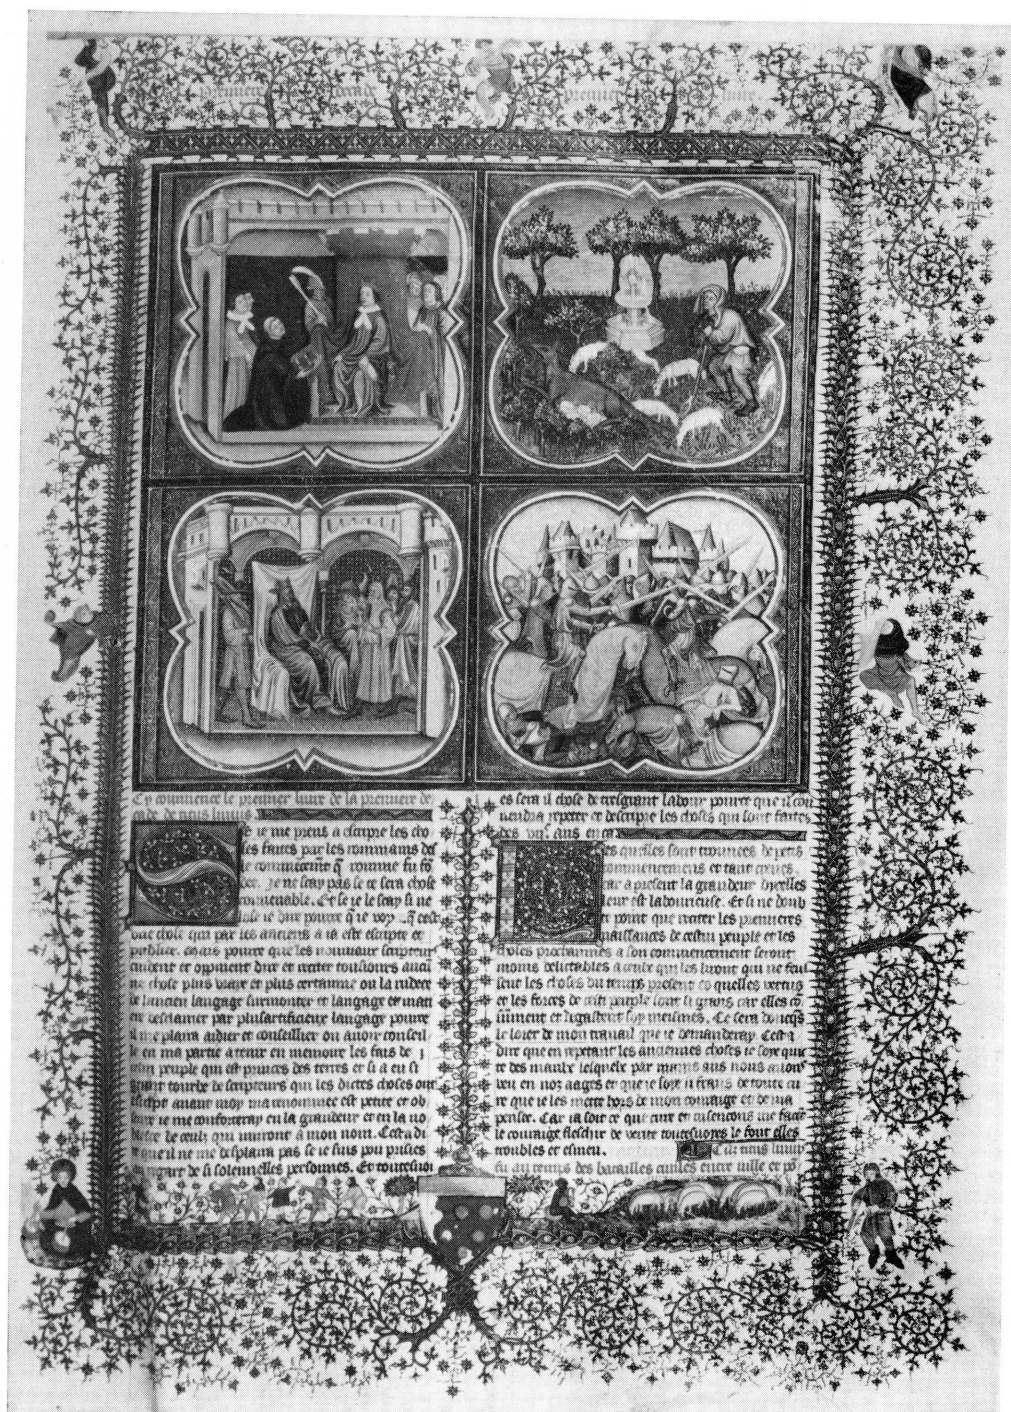 premiere decade premier livre.
Cy commence le premier livre de la premiere de
cade de titus livius.
Se ie me prens a escripre les cho
ses faites par les rommains des
le commencemt q̃ romme fu fō
dee. Je ne scay pas se ce sera chose
conuenable. Et se ie le scay si ne
lose ie dire pource q̃ ie voy q̃ cest
vne chose qui par les anciens a ia este escripte et
publiee. Mais pource que les nouuiaux scripteurs
cuident et opinent dire et reciter tousiours aucu
ne chose plus vraie et plus certainne ou la rudece
de lancien langage surmonter et langage et mati
ere desclairier par plus artificieux langage pource
il me plaira aidier et conseillier ou auoir conseil
le en ma partie a tenir en memoire les fais de
peuple qui est princes des terres et si a eu si
grant tourbe de scripteurs qui les dictes choses ont
escript auant moy ma renommee est petite et ob
ie me conforteray en la grandeur et en la no
blesce de ceulx qui nuiront a mon nom. Cest a di
re que il ne me desplaira pas se ie suis pou prisies
au regart de si solennelles personnes. Et toutesuoi
es sera il chose de tresgrant labour pource que il con
uendra repeter et descripre les choses qui sont faites
des vijc. ans en ca
Les quelles sont trouuees de petis
commencemens et tant creues.
car a present la grandeur dycelles
leur est labourieuse. Et si ne doub
te point que reciter les premieres
naissances de cestui peuple et les
choses prochainnes a son commencement seront
moins delictables a ceulx qui les liront qui ne feu
sent les choses du temps present es quelles vertus
et les forces de cest peuple sont si grans car elles cō
sument et degastent soy meismes. Ce sera doncqs
le loier de mon trauail que ie demanderay. Cest a
dire que en repetant les anciennes choses ie soye quit
te des maulx lesquelx par mains ans nous auons
veu en noz aages et que ie soye si frans de toute cu
re que ie les mette hors de mon courage et de ma
pensee. Car ia soit ce que cure et cusencons me face
le couraige fleschir de verite toutesuoies le font elles
troubles et esmeu. Titus liuius
fu au temps des batailles ciuiles entre sille et po